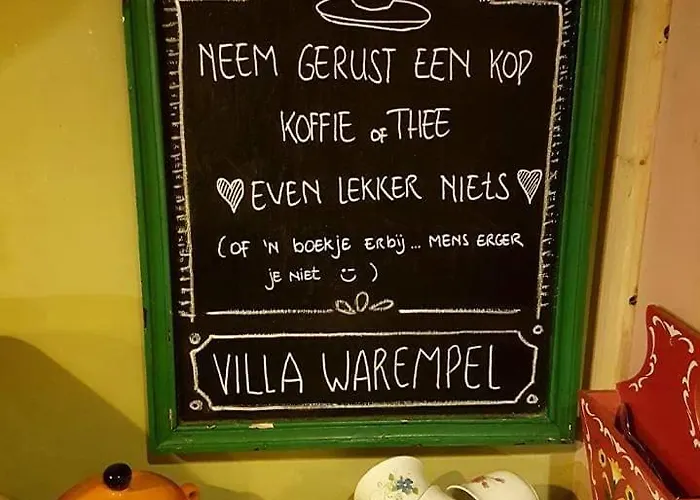 NEEM GERUST EEN KOP
KOFFIE OF THEE
EVEN LEKKER NIETS
(OF 'N BOEKJE ERBIJ... MENS ERGER
JE NIET ☺ )
VILLA WAREMPEL